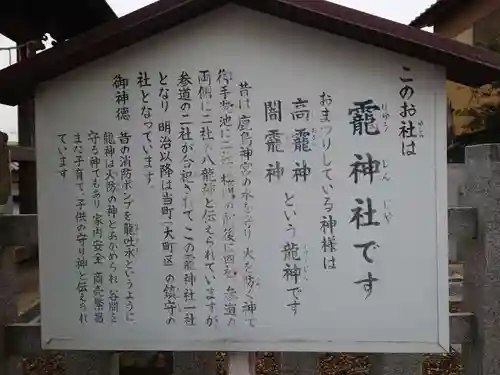 このお社は
龗神社です
りゅう じん じんじゃ
おまつりしている神様は
高龗神
という龍神です
闇龗神
昔は鹿島神宮の水を守り火を防ぐ神で
御手洗池に二社
両側に二社で八龍神と伝えられていますが
参道の二社が合祀されて この龗神社一社
となり 明治以降は当町(大町区)の鎮守の
社となっています。
御神徳
昔の消防ポンプを龍吐水というように
龍神は火防の神とあがめられ 各間を
守る神でもあり 家内安全 商売繁昌
また子育て、子供の守り神と伝えられ
ています